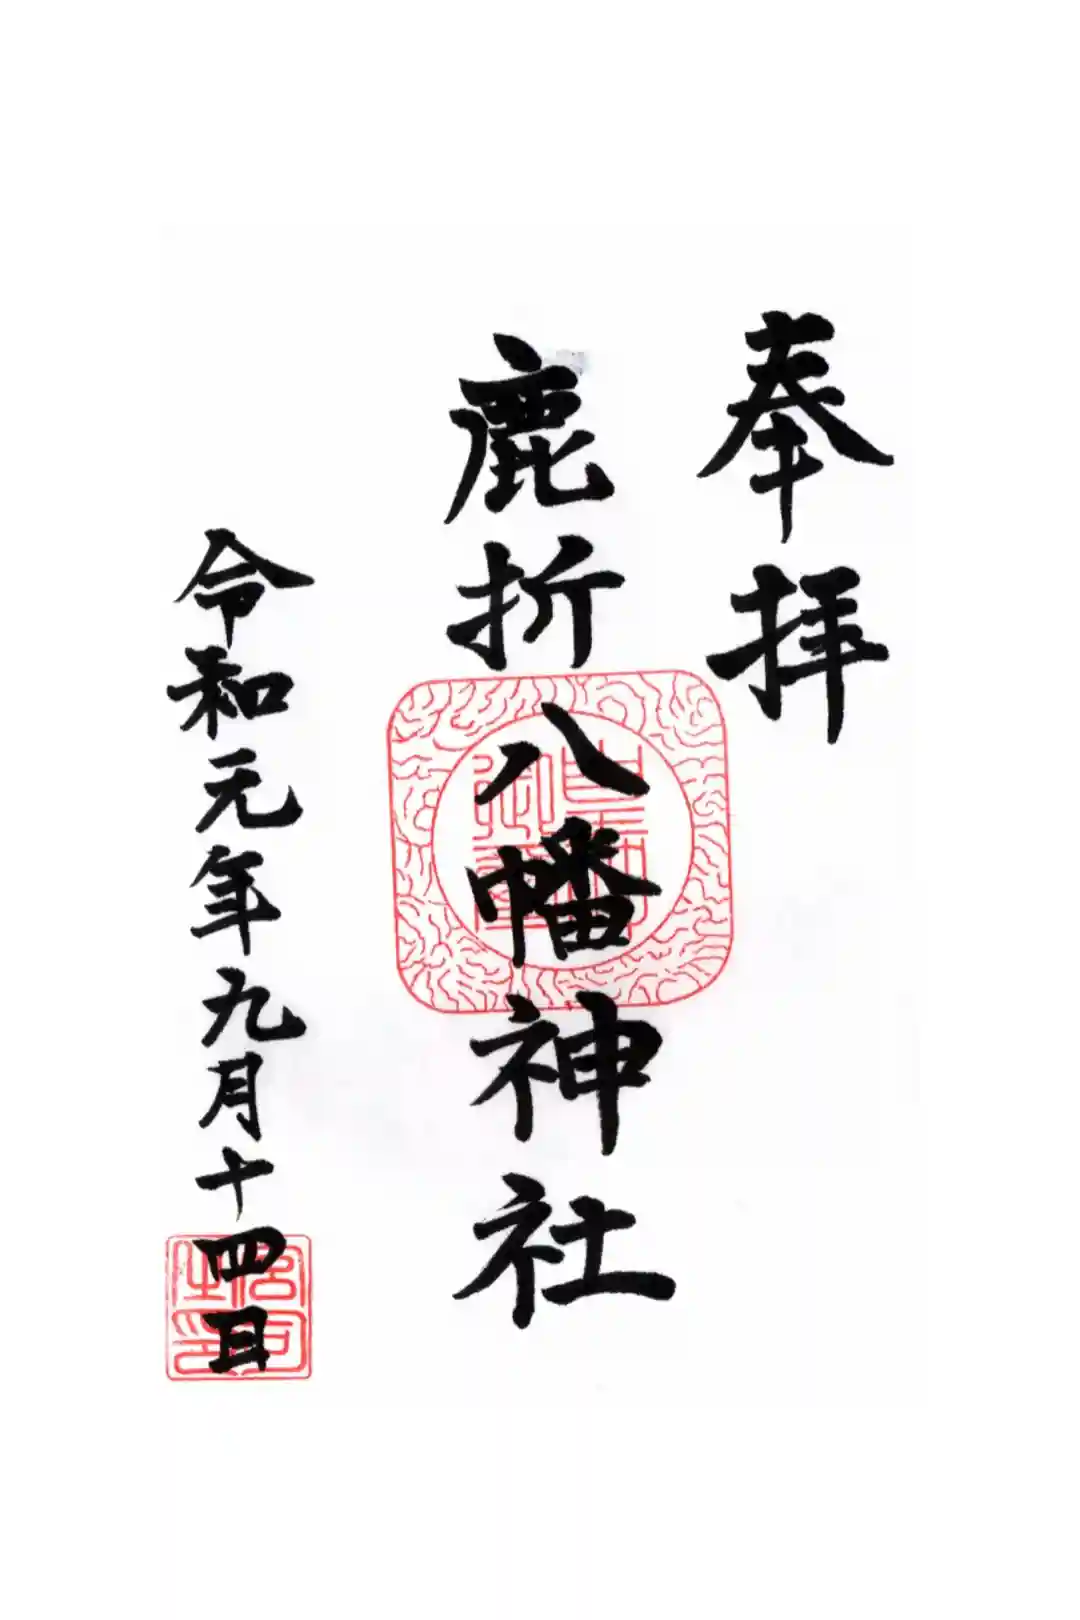 奉拝
鹿折八幡神社
令和元年九月十四日